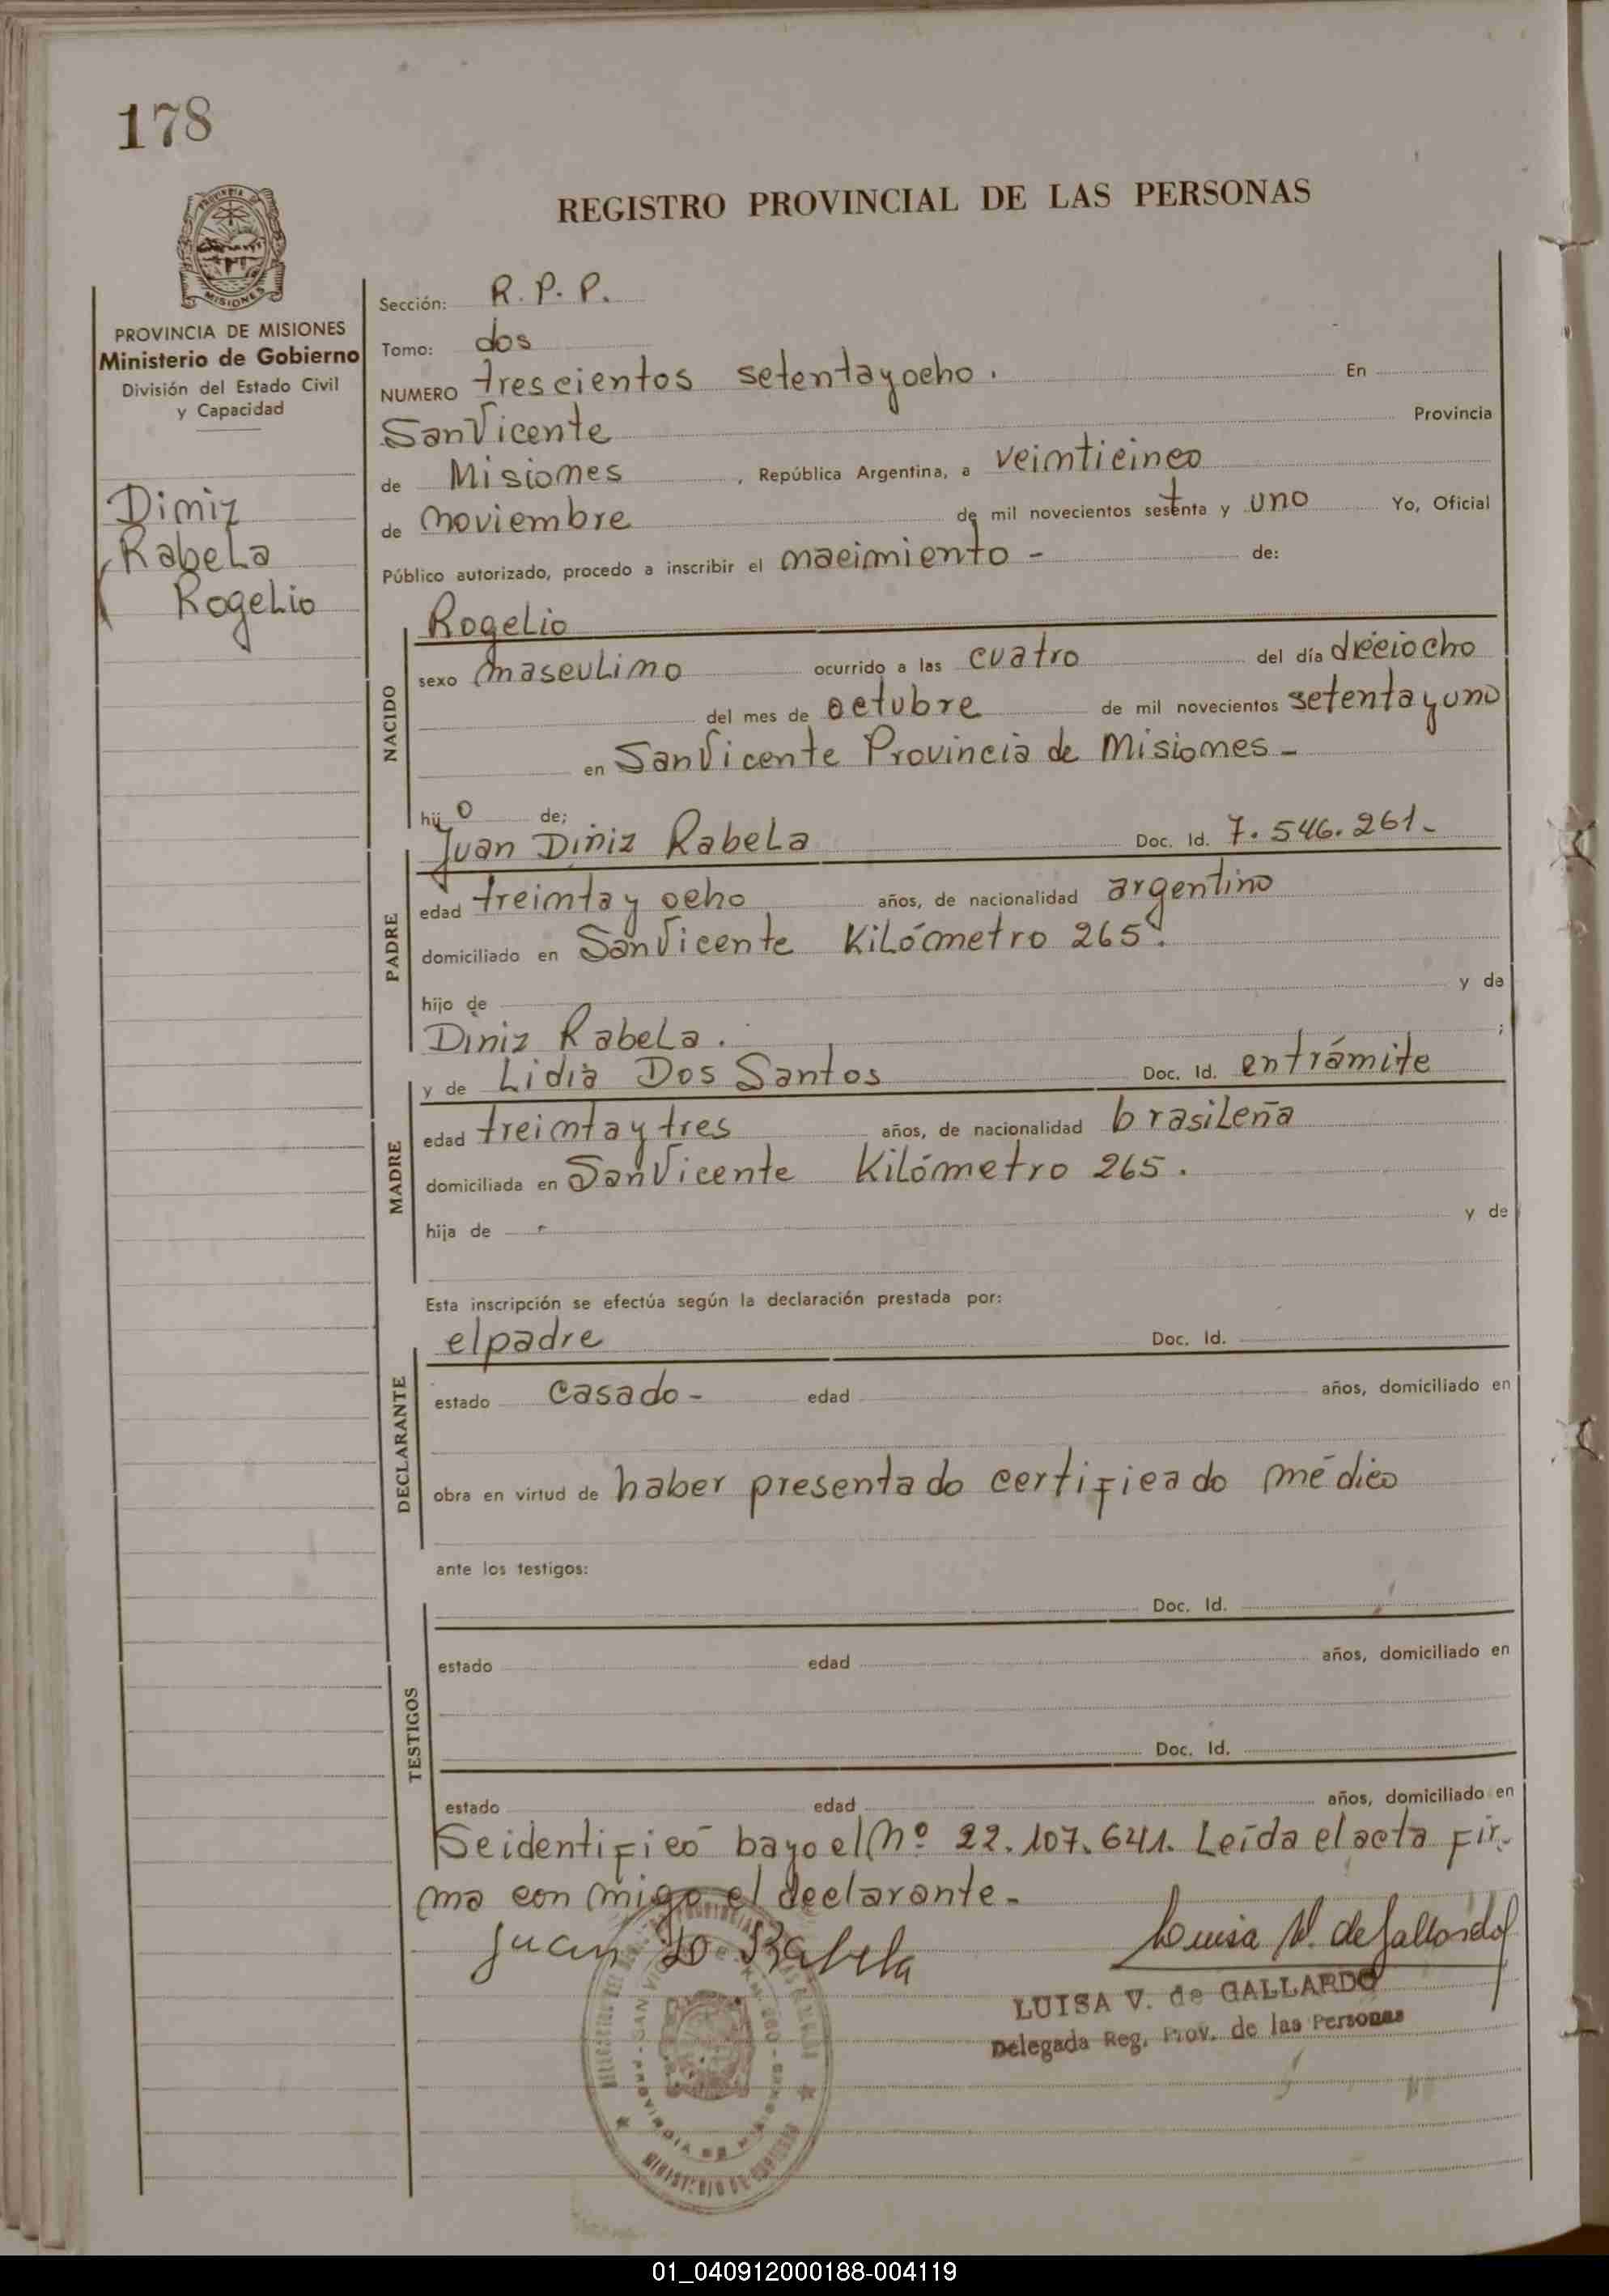 178
REGISTRO PROVINCIAL DE LAS PERSONAS
PROVINCIA DE MISIONES
Ministerio de Gobierno
División del Estado Civil
y Capacidad
Diniz
Rabela
Rogelio
Sección: R. P. P.
Tomo: dos
NUMERO trescientos setenta y ocho. En
San Vicente Provincia
de Misiones, República Argentina, a veinticinco
de noviembre de mil novecientos setenta y uno Yo, Oficial
Público autorizado, procedo a inscribir el nacimiento - de:
NACIDO
Rogelio
sexo masculino ocurrido a las cuatro del día dieciocho
del mes de octubre de mil novecientos setenta y uno
en San Vicente Provincia de Misiones -
hijo de;
PADRE
Juan Diniz Rabela Doc. Id. 7.546.261.-
edad treinta y ocho años, de nacionalidad argentino
domiciliado en San Vicente Kilómetro 265.
hijo de y de
Diniz Rabela. ;
MADRE
y de Lidia Dos Santos Doc. Id. en trámite
edad treinta y tres años, de nacionalidad brasileña
domiciliada en San Vicente Kilómetro 265.
hija de - y de
Esta inscripción se efectúa según la declaración prestada por:
DECLARANTE
el padre Doc. Id.
estado casado - edad años, domiciliado en
obra en virtud de haber presentado certificado médico
ante los testigos:
TESTIGOS
Doc. Id.
estado edad años, domiciliado en
Doc. Id.
estado edad años, domiciliado en
Se identificó bajo el Nº 22.107.641. Leída el acta fir-
ma con migo el declarante.-
Juan D Rabela
Luisa V. de Gallardo
LUISA V. de GALLARDO
Delegada Reg. Prov. de las Personas
01_040912000188-004119